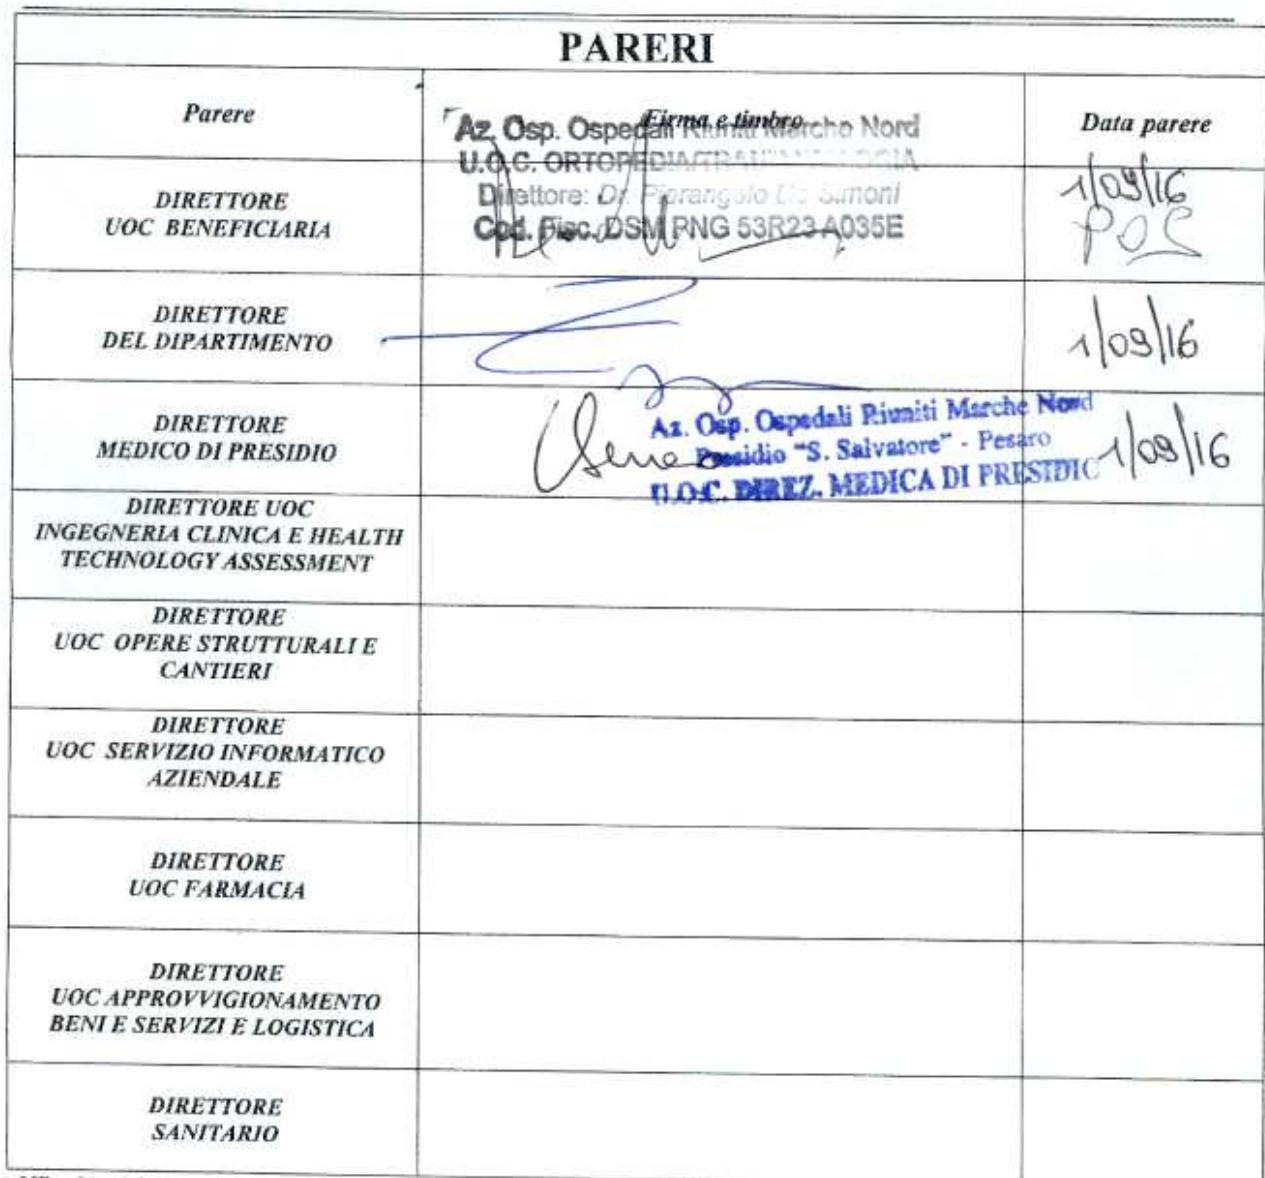 PARERI
Parere
Firma e timbro
Data parere
Az. Osp. Ospedali Riuniti Marche Nord
U.O.C. ORTOPEDIA/TRAUMATOLOGIA
Direttore: Dr. Pierangelo De Simoni
Cod. Fisc. DSM PNG 53R23 A035E
DIRETTORE
UOC BENEFICIARIA
1/09/16
POC
DIRETTORE
DEL DIPARTIMENTO
1/09/16
DIRETTORE
MEDICO DI PRESIDIO
Az. Osp. Ospedali Riuniti Marche Nord
Presidio "S. Salvatore" - Pesaro
U.O.C. DIREZ. MEDICA DI PRESIDIO
1/09/16
DIRETTORE UOC
INGEGNERIA CLINICA E HEALTH
TECHNOLOGY ASSESSMENT
DIRETTORE
UOC OPERE STRUTTURALI E
CANTIERI
DIRETTORE
UOC SERVIZIO INFORMATICO
AZIENDALE
DIRETTORE
UOC FARMACIA
DIRETTORE
UOC APPROVVIGIONAMENTO
BENI E SERVIZI E LOGISTICA
DIRETTORE
SANITARIO